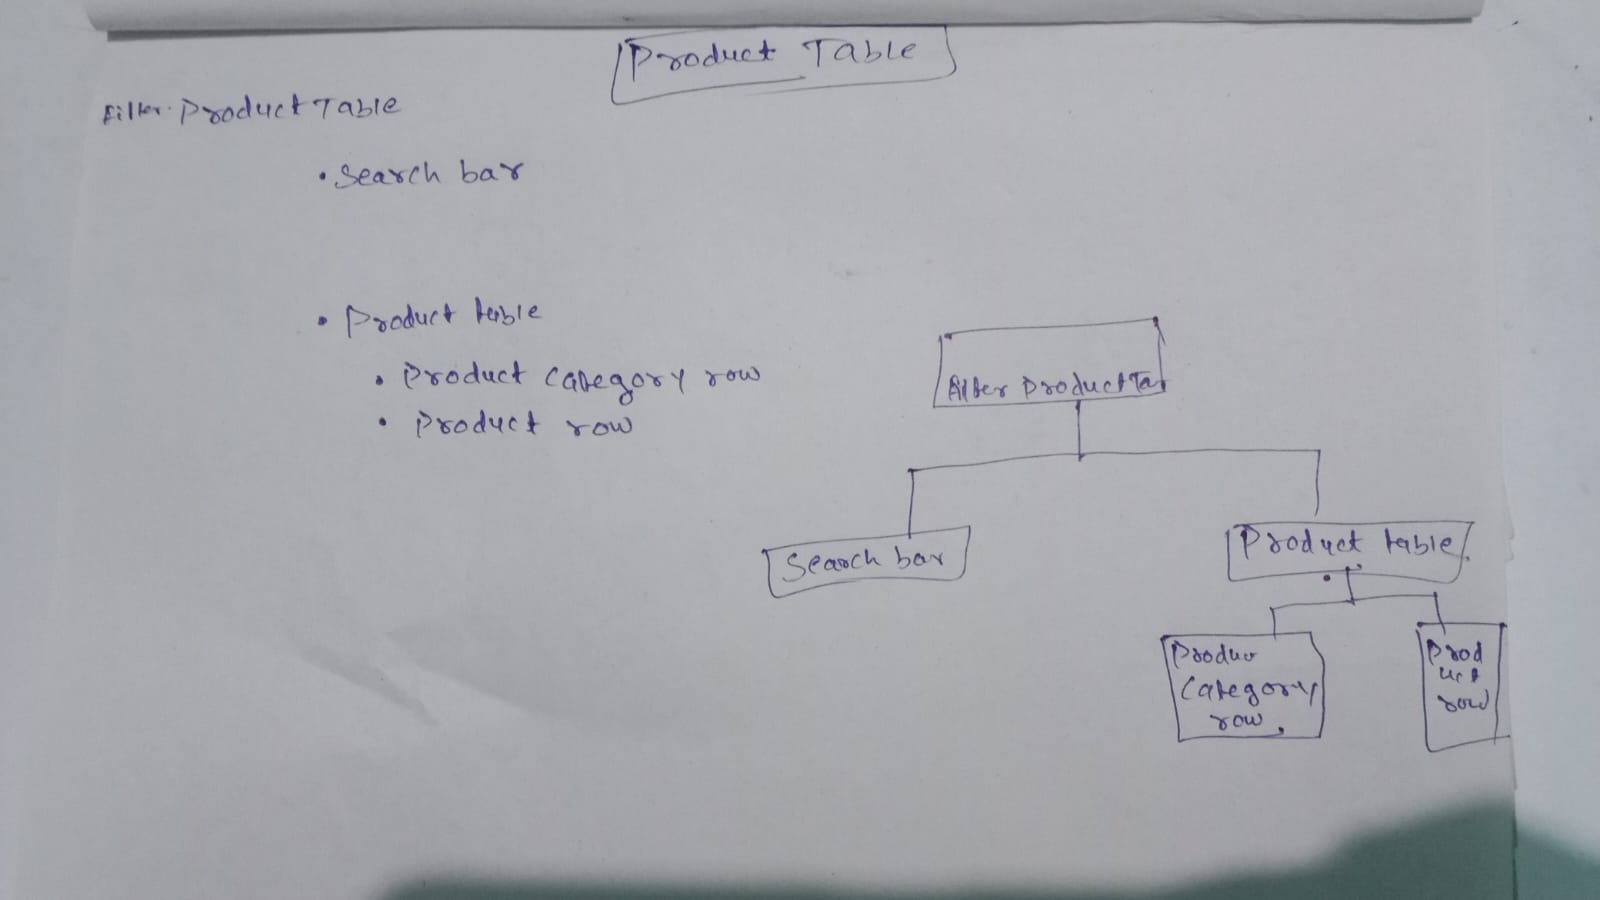 Product Table
Filter Product Table
• Search bar
• Product table
• Product category row
• Product row
Filter Product Ta
Search bar
Product table
Produc
category
row
Prod
uct
row